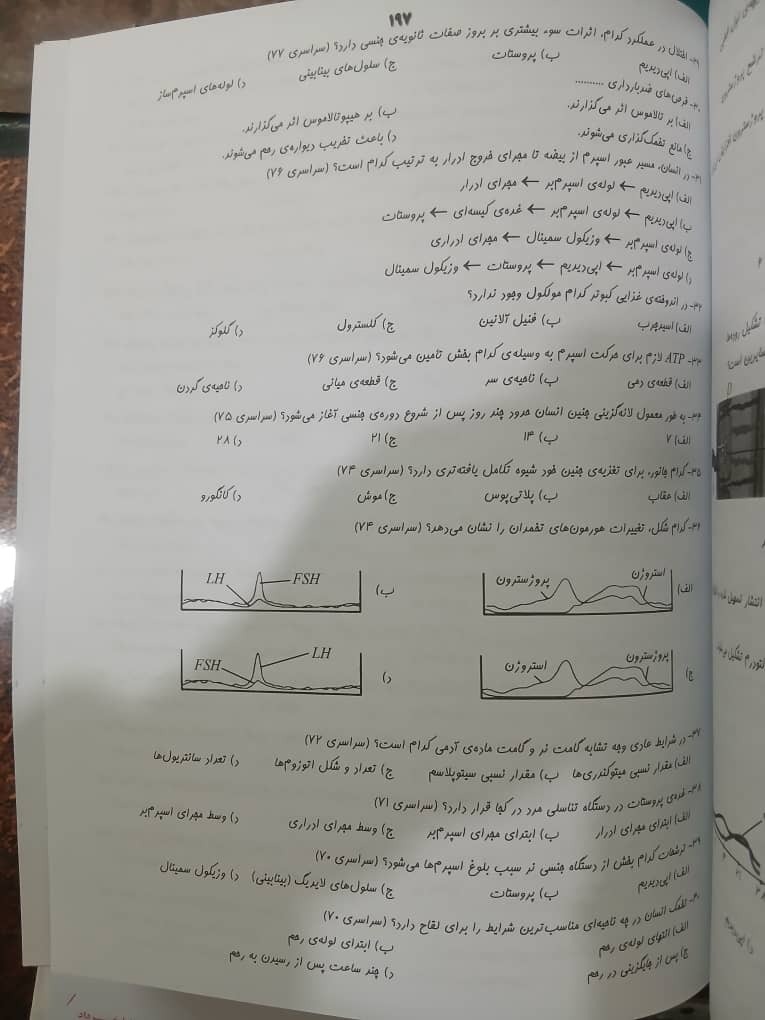 ۱۹۷
۲۹- اختلال در عملکرد کدام، اثرات سوء بیشتری بر بروز صفات ثانویه‌ی جنسی دارد؟ (سراسری ۷۷)
الف) اپی‌دیدیم ب) پروستات ج) سلول‌های بینابینی د) لوله‌های اسپرم‌ساز
۳۰- قرص‌های ضدبارداری ..........
الف) بر تالاموس اثر می‌گذارند. ب) بر هیپوتالاموس اثر می‌گذارند.
ج) مانع تخمک‌گذاری می‌شوند. د) باعث تخریب دیواره‌ی رحم می‌شوند.
۳۱- در انسان، مسیر عبور اسپرم از بیضه تا مجرای خروج ادرار به ترتیب کدام است؟ (سراسری ۷۶)
الف) اپی‌دیدیم ← لوله‌ی اسپرم‌بر ← مجرای ادرار
ب) اپی‌دیدیم ← لوله‌ی اسپرم‌بر ← غده‌ی کیسه‌ای ← پروستات
ج) لوله‌ی اسپرم‌بر ← وزیکول سمینال ← مجرای ادراری
د) لوله‌ی اسپرم‌بر ← اپی‌دیدیم ← پروستات ← وزیکول سمینال
۳۲- در اندوخته‌ی غذایی کبوتر کدام مولکول وجود ندارد؟
الف) اسیدچرب ب) فنیل آلانین ج) کلسترول د) گلوکز
۳۳- ATP لازم برای حرکت اسپرم به وسیله‌ی کدام بخش تامین می‌شود؟ (سراسری ۷۶)
الف) قطعه‌ی دمی ب) ناحیه‌ی سر ج) قطعه‌ی میانی د) ناحیه‌ی گردن
۳۴- به طور معمول لانه‌گزینی جنین انسان حدود چند روز پس از شروع دوره‌ی جنسی آغاز می‌شود؟ (سراسری ۷۵)
الف) ۷ ب) ۱۴ ج) ۲۱ د) ۲۸
۳۵- کدام جانور، برای تغذیه‌ی جنین خود شیوه تکامل یافته‌تری دارد؟ (سراسری ۷۴)
الف) عقاب ب) پلاتی‌پوس ج) موش د) کانگورو
۳۶- کدام شکل، تغییرات هورمون‌های تخمدان را نشان می‌دهد؟ (سراسری ۷۴)
الف) پروژسترون استروژن ب) LH FSH
ج) استروژن پروژسترون د) FSH LH
۳۷- در شرایط عادی وجه تشابه گامت نر و گامت ماده‌ی آدمی کدام است؟ (سراسری ۷۲)
الف) مقدار نسبی میتوکندری‌ها ب) مقدار نسبی سیتوپلاسم ج) تعداد و شکل اتوزوم‌ها د) تعداد سانتریول‌ها
۳۸- غده‌ی پروستات در دستگاه تناسلی مرد در کجا قرار دارد؟ (سراسری ۷۱)
الف) ابتدای مجرای ادرار ب) ابتدای مجرای اسپرم‌بر ج) وسط مجرای ادراری د) وسط مجرای اسپرم‌بر
۳۹- ترشحات کدام بخش از دستگاه جنسی نر سبب بلوغ اسپرم‌ها می‌شود؟ (سراسری ۷۰)
الف) اپی‌دیدیم ب) پروستات ج) سلول‌های لایدیگ (بینابینی) د) وزیکول سمینال
۴۰- تخمک انسان در چه ناحیه‌ای مناسب‌ترین شرایط را برای لقاح دارد؟ (سراسری ۷۰)
الف) انتهای لوله‌ی رحم ب) ابتدای لوله‌ی رحم
ج) پس از جایگزینی در رحم د) چند ساعت پس از رسیدن به رحم